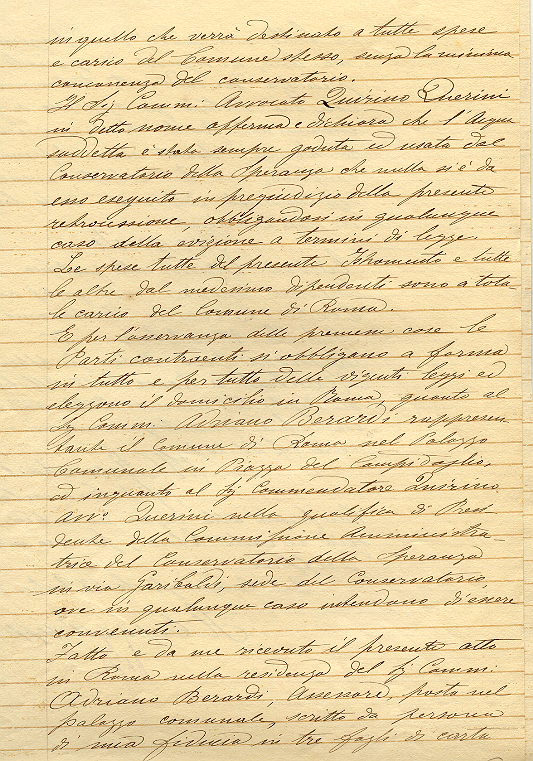 in quello che verrà destinato a tutte spese
e carico del Comune stesso, senza la minima
concorrenza del conservatorio.
Il Sig Comm: Avvocato Quirino Querini
in detto nome afferma e dichiara che l'Acqua
suddetta è stata sempre goduta ed usata dal
Conservatorio della Speranza che nulla si è da
esso eseguito in pregiudizio della presente
retrocessione, obbligandosi in qualunque
caso della evizione a termini di legge.
Le spese tutte del presente Istromento e tutte
le altre dal medesimo dipendenti sono a tota-
le carico del Comune di Roma.
E per l'osservanza delle premesse cose le
Parti contraenti si obbligano a forma
in tutto e per tutto delle vigenti leggi ed
eleggono il domicilio in Roma, quanto al
Sig Comm: Adriano Berardi rappresen-
tante il Comune di Roma nel Palazzo
Comunale in Piazza del Campidoglio,
ed inquanto al Sig Commendatore Quirino
Avvo. Querini nella qualifica di Presi
dente della Commissione Amministra-
trice del Conservatorio della Speranza
in via Garibaldi, sede del Conservatorio,
ove in qualunque caso intendono di essere
convenuti.
Fatto e da me ricevuto il presente atto
in Roma nella residenza del Sig Comm:
Adriano Berardi, Assessore, posta nel
palazzo comunale, scritto da persona
di mia fiducia in tre fogli di carta